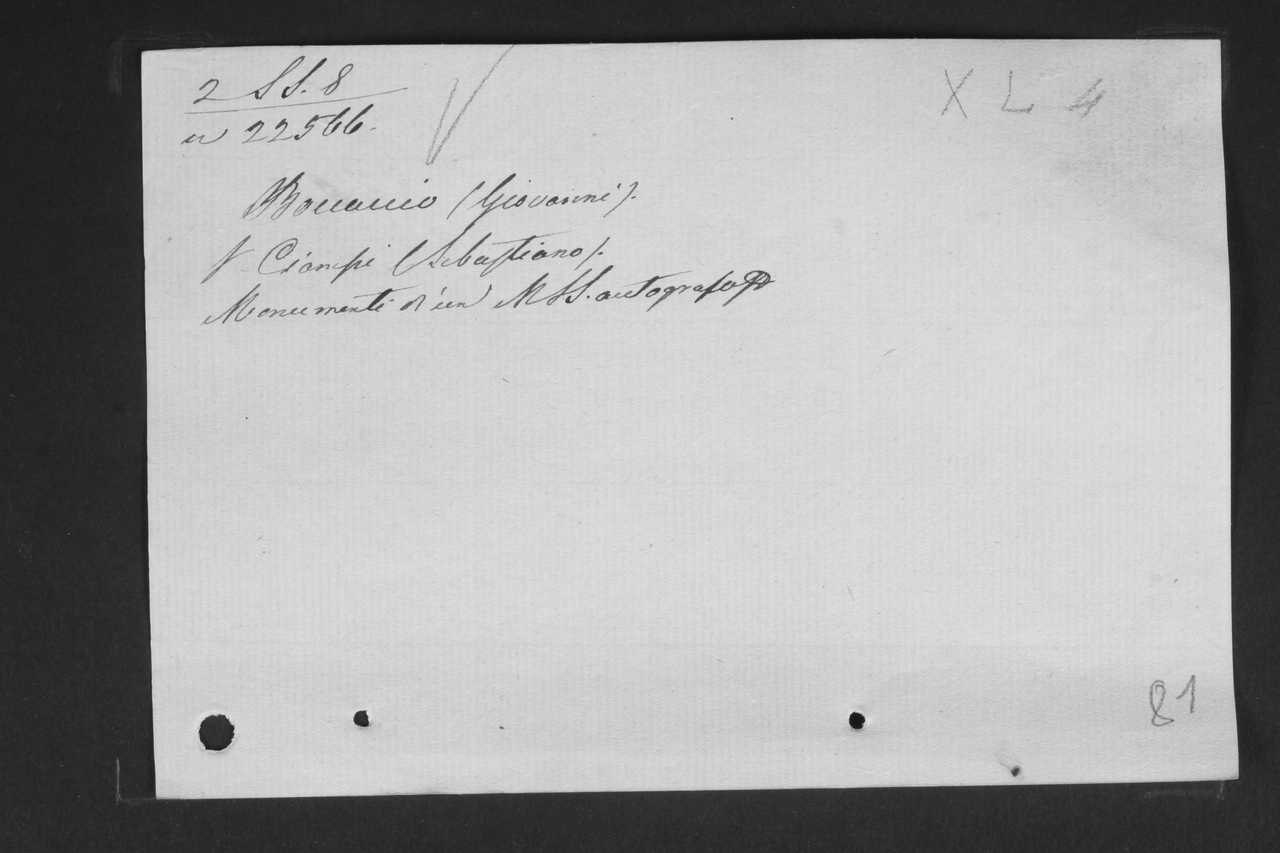 2 SS. 8
X L 4
n 22566.
Boccaccio (Giovanni).
V. Ciampi (Sebastiano).
Monumenti d'un MSS. autografo
81